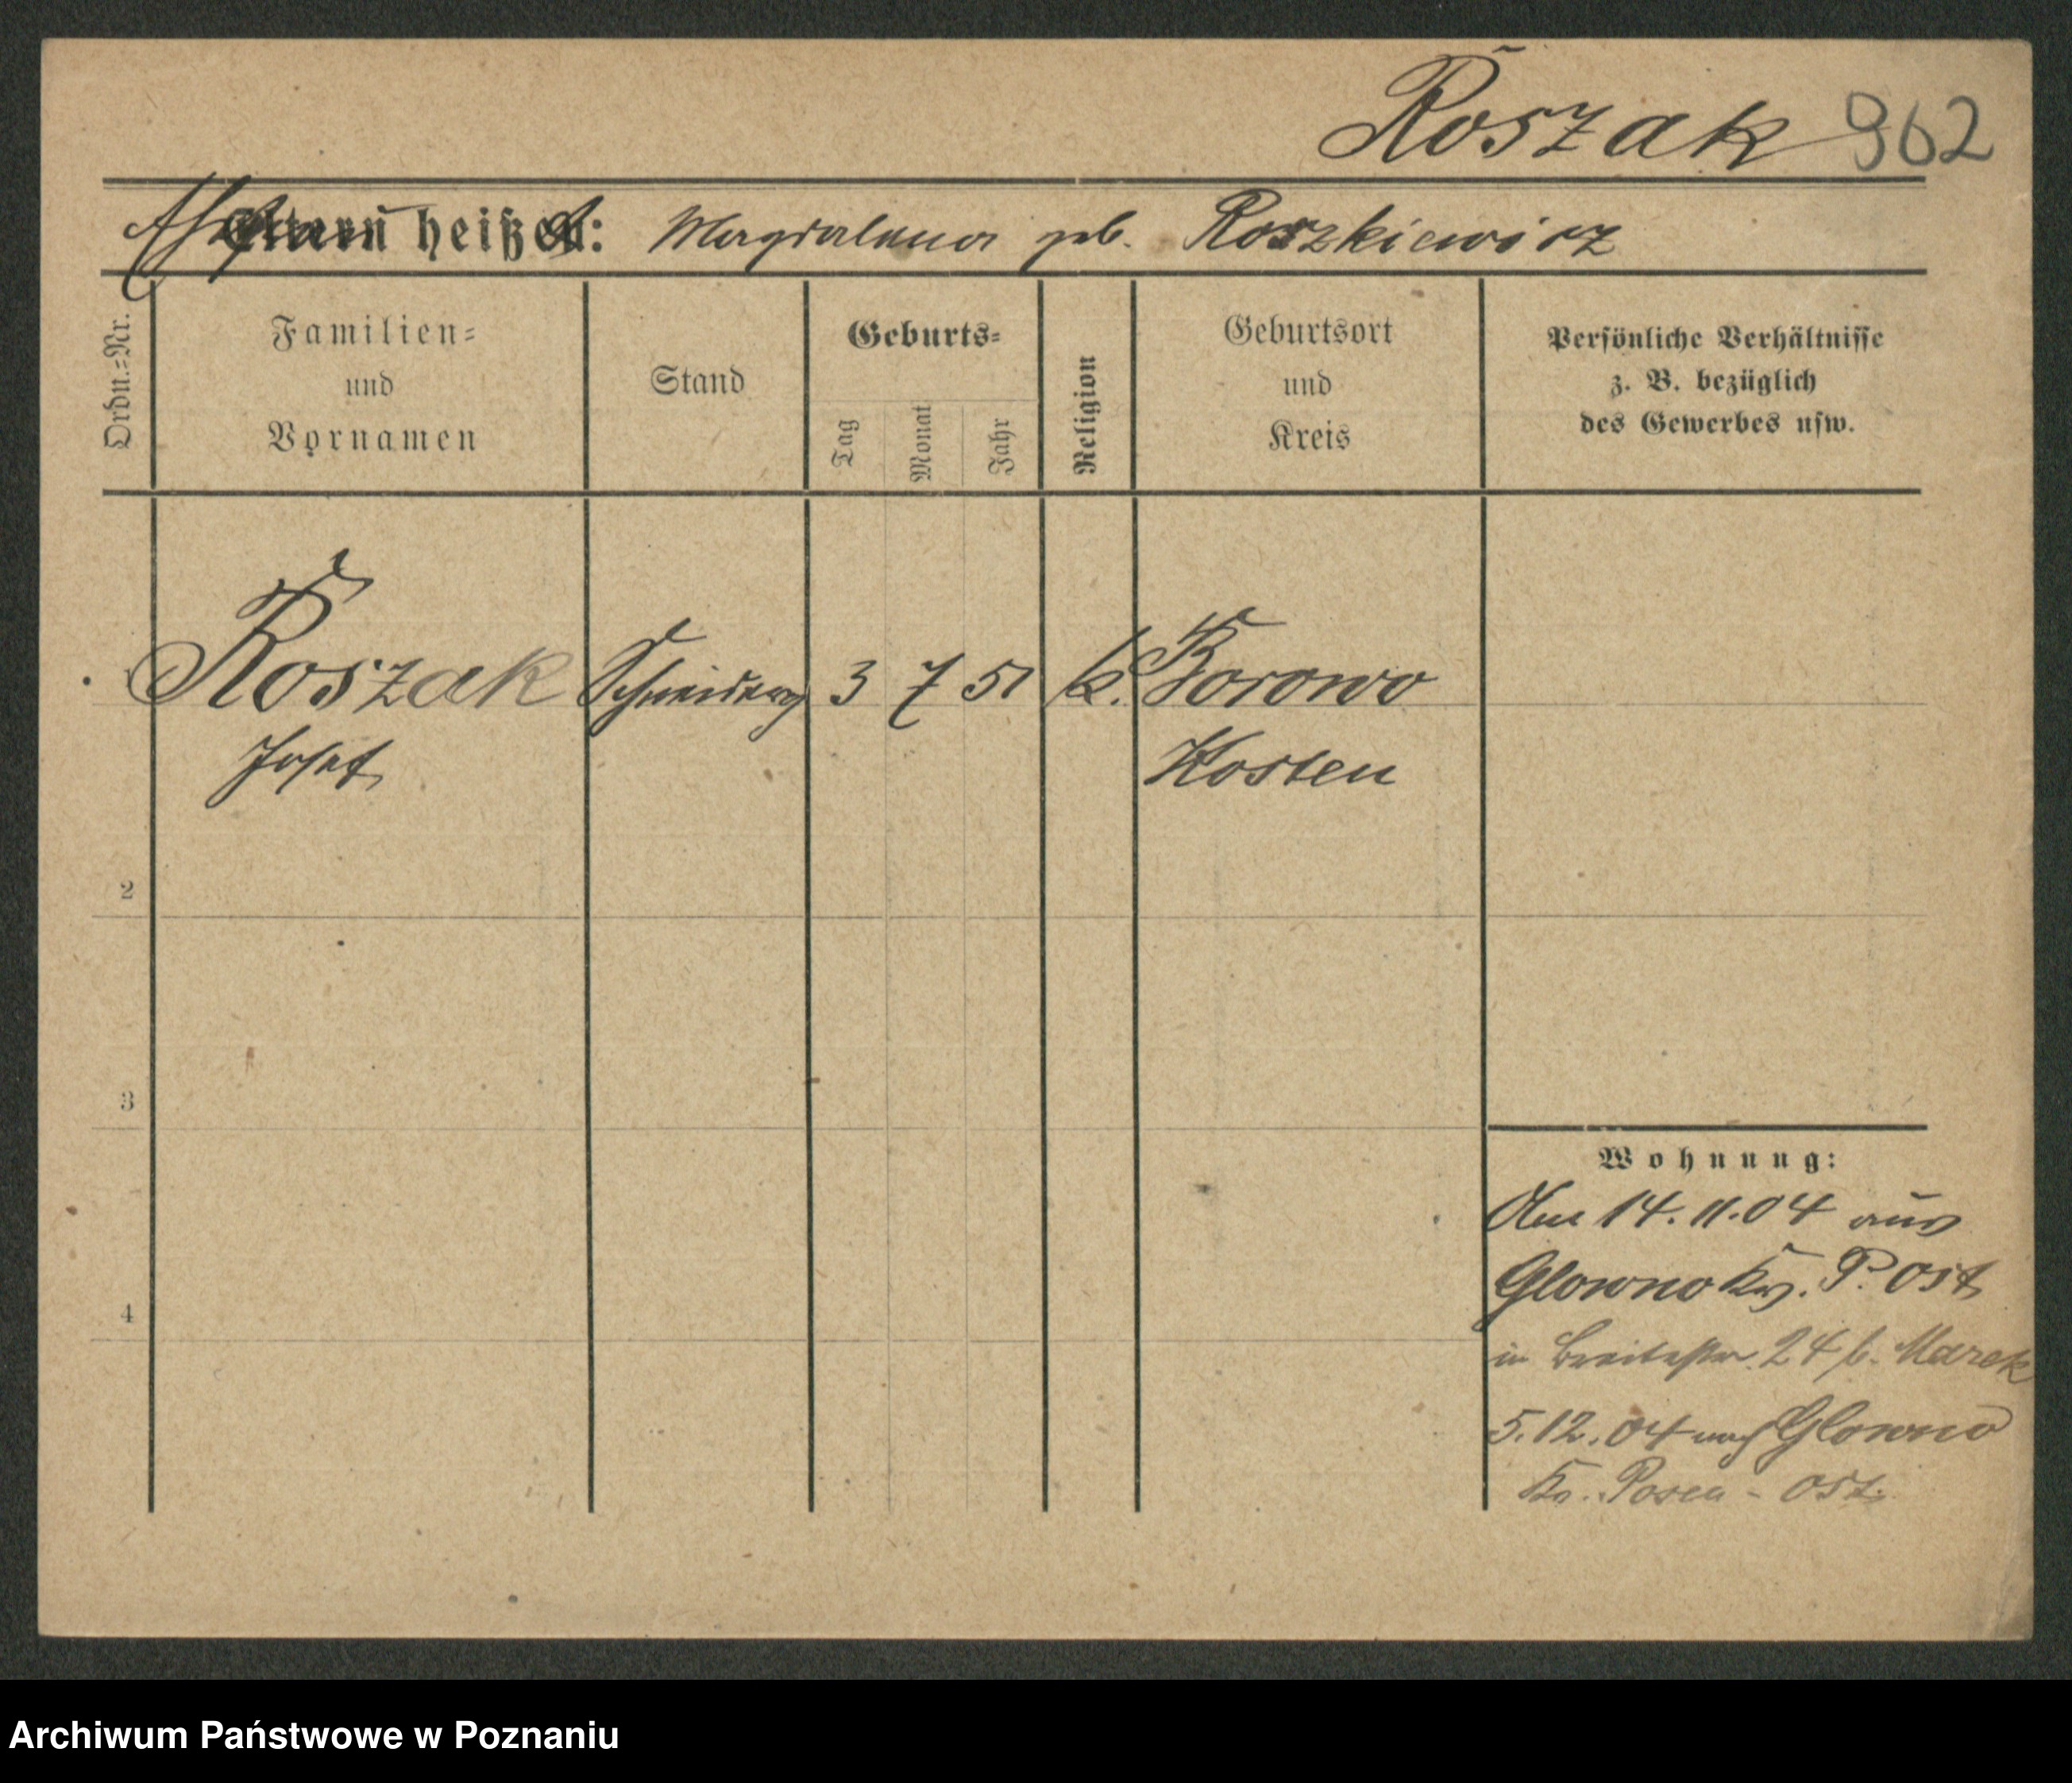 Roszak 962
Ehefrau heißt: Magdalena geb. Roszkiewicz
Ordn.=Nr.
Familien=
und
Vornamen
Stand
Geburts=
Tag
Monat
Jahr
Religion
Geburtsort
und
Kreis
Persönliche Verhältnisse
z. B. bezüglich
des Gewerbes usw.
Roszak Schneiderg 3 7 51 k. Borowo
Josef Kosten
2
3
4
Wohnung:
Am 14.11.04 aus
Glowno Kr. P. Ost
in Breitestr. 24 b. Marek
5.12.04 nach Glowno
Kr. Posen - Ost.
Archiwum Państwowe w Poznaniu